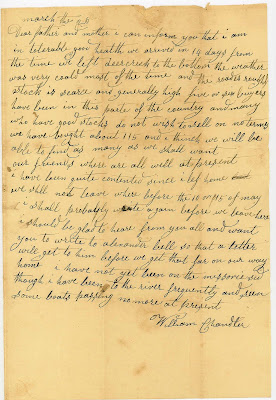 march the 26
Dear father and mother i can inform you that i am
in tolerable good health we arrived in 19 days from
the time we left deercreek to the the weather
was very cool most of the time and the roads rough
stock is scarce and generally high five or six buyers
have been in this parte of the country and many
who have good stocks do not wish to sell on no terms
we have bought about 115 and i think we will be
able to find as many as we shall want
our friends where are all well at present
i have been quite contented since i lef home
we shall not leave where before the 10 or 15 of may
i shall probably write again before we leave here
i should be glad to hear from you all and want
you to write to alexander bell so that a letter
will get to him before we get that far on our way
home i have not yet been on the missorie side
though i have been to the river frequently and seen
some boats passing no more at present
William Chandler